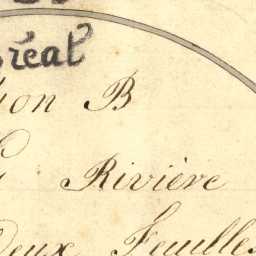 réal
tion B
Rivière
Deux Feuilles